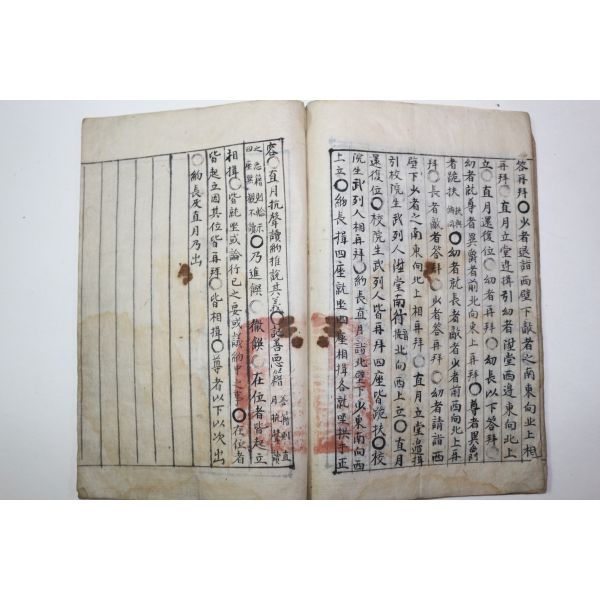 答再拜○少者退詣西壁下敵者之南東向北上相
再拜○直月立堂邊揖引幼者陞堂西邊東向北上
立○直月還復位○幼者再拜○幼長以下答拜○
幼者就尊者異爵者前北向東上再拜○尊者異爵
者跪扶○幼者就長者敵者少者前西向北上再
拜○長者敵者答拜○少者答再拜○幼者請詣西
壁下少者之南東向北上相再拜○直月立堂邊揖
引校院生武列人陞堂南行北向西上立○直月
還復位○校院生武列人皆再拜四座皆跪扶○校
院生武列人相再拜○約長直月詣北壁下少東南向西
上立○約長揖四座就坐四座相揖各就坐拱手正
容○直月抗聲讀約推說其義○記善惡籍
之惡籍則
四座默觀不讀○乃進饌○徹饌○在位者皆起立
相揖○皆就坐或論行己之要或講約中之事○在位者
皆起立因其位皆再拜○皆相揖○尊者以下以次出
○約長及直月乃出